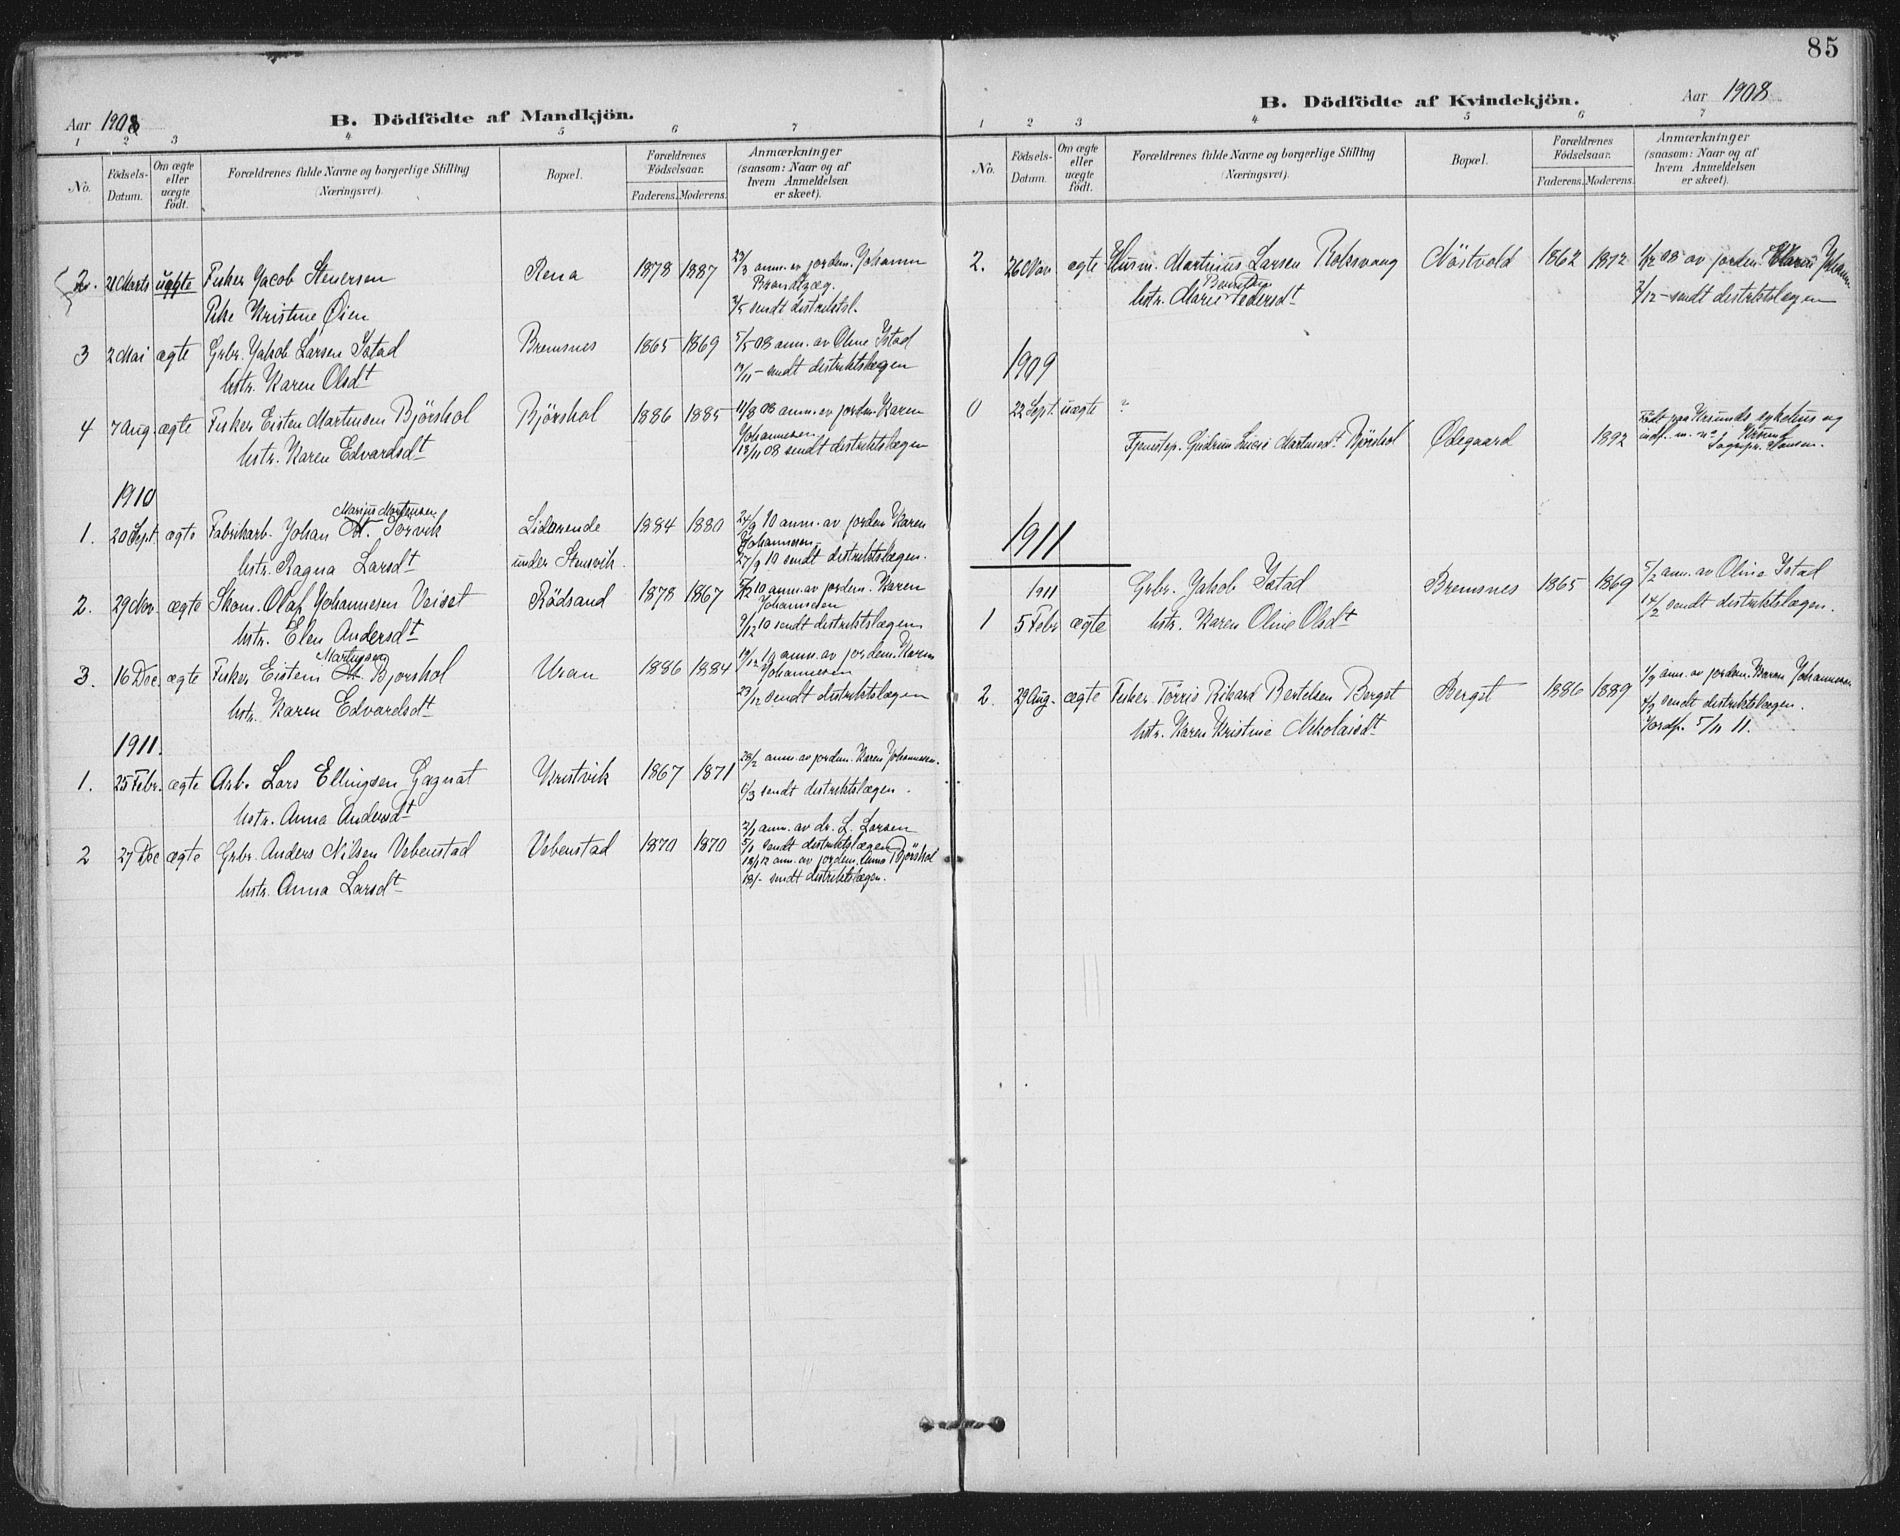 85
Aar 1908
B. Dödfödte af Mandkjön.
1 2 3 4 5 6 7
No.
Födsels-Datum.
Om ægte eller uægte födt.
Forældrenes fulde Navne og borgerlige Stilling (Næringsvei).
Bopæl.
Forældrenes Födselsaar.
Faderens. Moderens.
Anmærkninger (saasom: Naar og af hvem Anmeldelsen er skeet).
2. 21 Marts uægte Fisker Jacob Stenersen Rena 1878 1887 23/3 anm. av jordm. Johanna
Brandtzæg.
Pike Kristine Øien 2/5 sendt distriktsl.
3 2 Mai ægte Grbr. Jakob Larsen Istad Bremsnes 1865 1869 5/5 08 anm. av Oline Istad
hstr. Karen Olsdt sendt distriktslægen
4 7 Aug. ægte Fisker Eisten Martinsen Bjørshol Bjørshol 1886 1885 11/8 08 anm. av jordm. Karen
Johannesen
hstr. Karen Edvardsdt 13/11 08 sendt distriktslægen
1910
Marius Martinsen
1. 20 Sept. ægte Fabrikarb. Johan M. Torvik Lidarende 1884 1880 24/9 10 anm. av jordm. Karen
Johannesen
hstr. Ragna Larsdt under Stensvik. 27/9 10 sendt distriktslægen.
2. 29 Nov. ægte Skom. Olaf Johannesen Veiset Rödsand 1878 1867 5/12 10 anm. av jordem. Karen
Johannesen
hstr. Elen Andersdt 9/12 10 sendt distriktslægen
Martinsen
3. 16 Dec. ægte Fisker Eistein M. Bjorshol Uran 1886 1884 19/12 10 anm. av jordem. Karen
Johannesen
hstr. Karen Edvardsdt 23/12 sendt distriktslægen
1911.
1. 25 Febr. ægte Arb. Lars Ellingsen Gagnat Kristvik 1867 1871 28/2 anm. av jordem. Karen Johannesen.
hstr. Anna Andersdt 4/3 sendt distriktslægen.
2 27 Dec ægte Grbr. Anders Nilsen Vebenstad Vebenstad 1870 1870 2/1 anm. av dr. L. Larsen
5/1 sendt distriktslægen
12 anm. av jordem. Anna Bjørshol
hstr. Anna Larsdt sendt distriktslægen.
B. Dödfödte af Kvindekjön.
Aar 1908
1 2 3 4 5 6 7
No.
Födsels-Datum.
Om ægte eller uægte födt.
Forældrenes fulde Navne og borgerlige Stilling (Næringsvei).
Bopæl.
Forældrenes Födselsaar.
Faderens. Moderens.
Anmærkninger (saasom: Naar og af hvem Anmeldelsen er skeet).
2. 26 Nov ægte Husm. Martinus Larsen Roksvaag Nöstvold 1862 1872 1/12 08 av jordem. Karen Johannesen
hstr. Marie Pedersdt 3/12 - sendt distriktslægen
1909
0 22 Sept. uægte ? Födt paa Krsunds sykehus og
Tjenestep. Gudrun Lucie Martinsdt Bjørshol Ødegaard 1892 indf. m. no Krsund
Sognepr. Hansen.
1911
1911 Grbr. Jakob Istad Bremsnes 1865 1869 5/2 anm. av Oline Istad
1 5 Febr ægte hstr. Karen Oline Olsdt 14/2 sendt distriktslægen.
2. 29 Aug. ægte Fisker Tørris Rikard Bertelsen Bergst Bergst 1886 1889 1/9 anm. av jordem. Karen Johannesen
4/9 sendt distriktslægen.
hstr. Karen Kristine Nikolaisdt Jordf. 5/11 11.